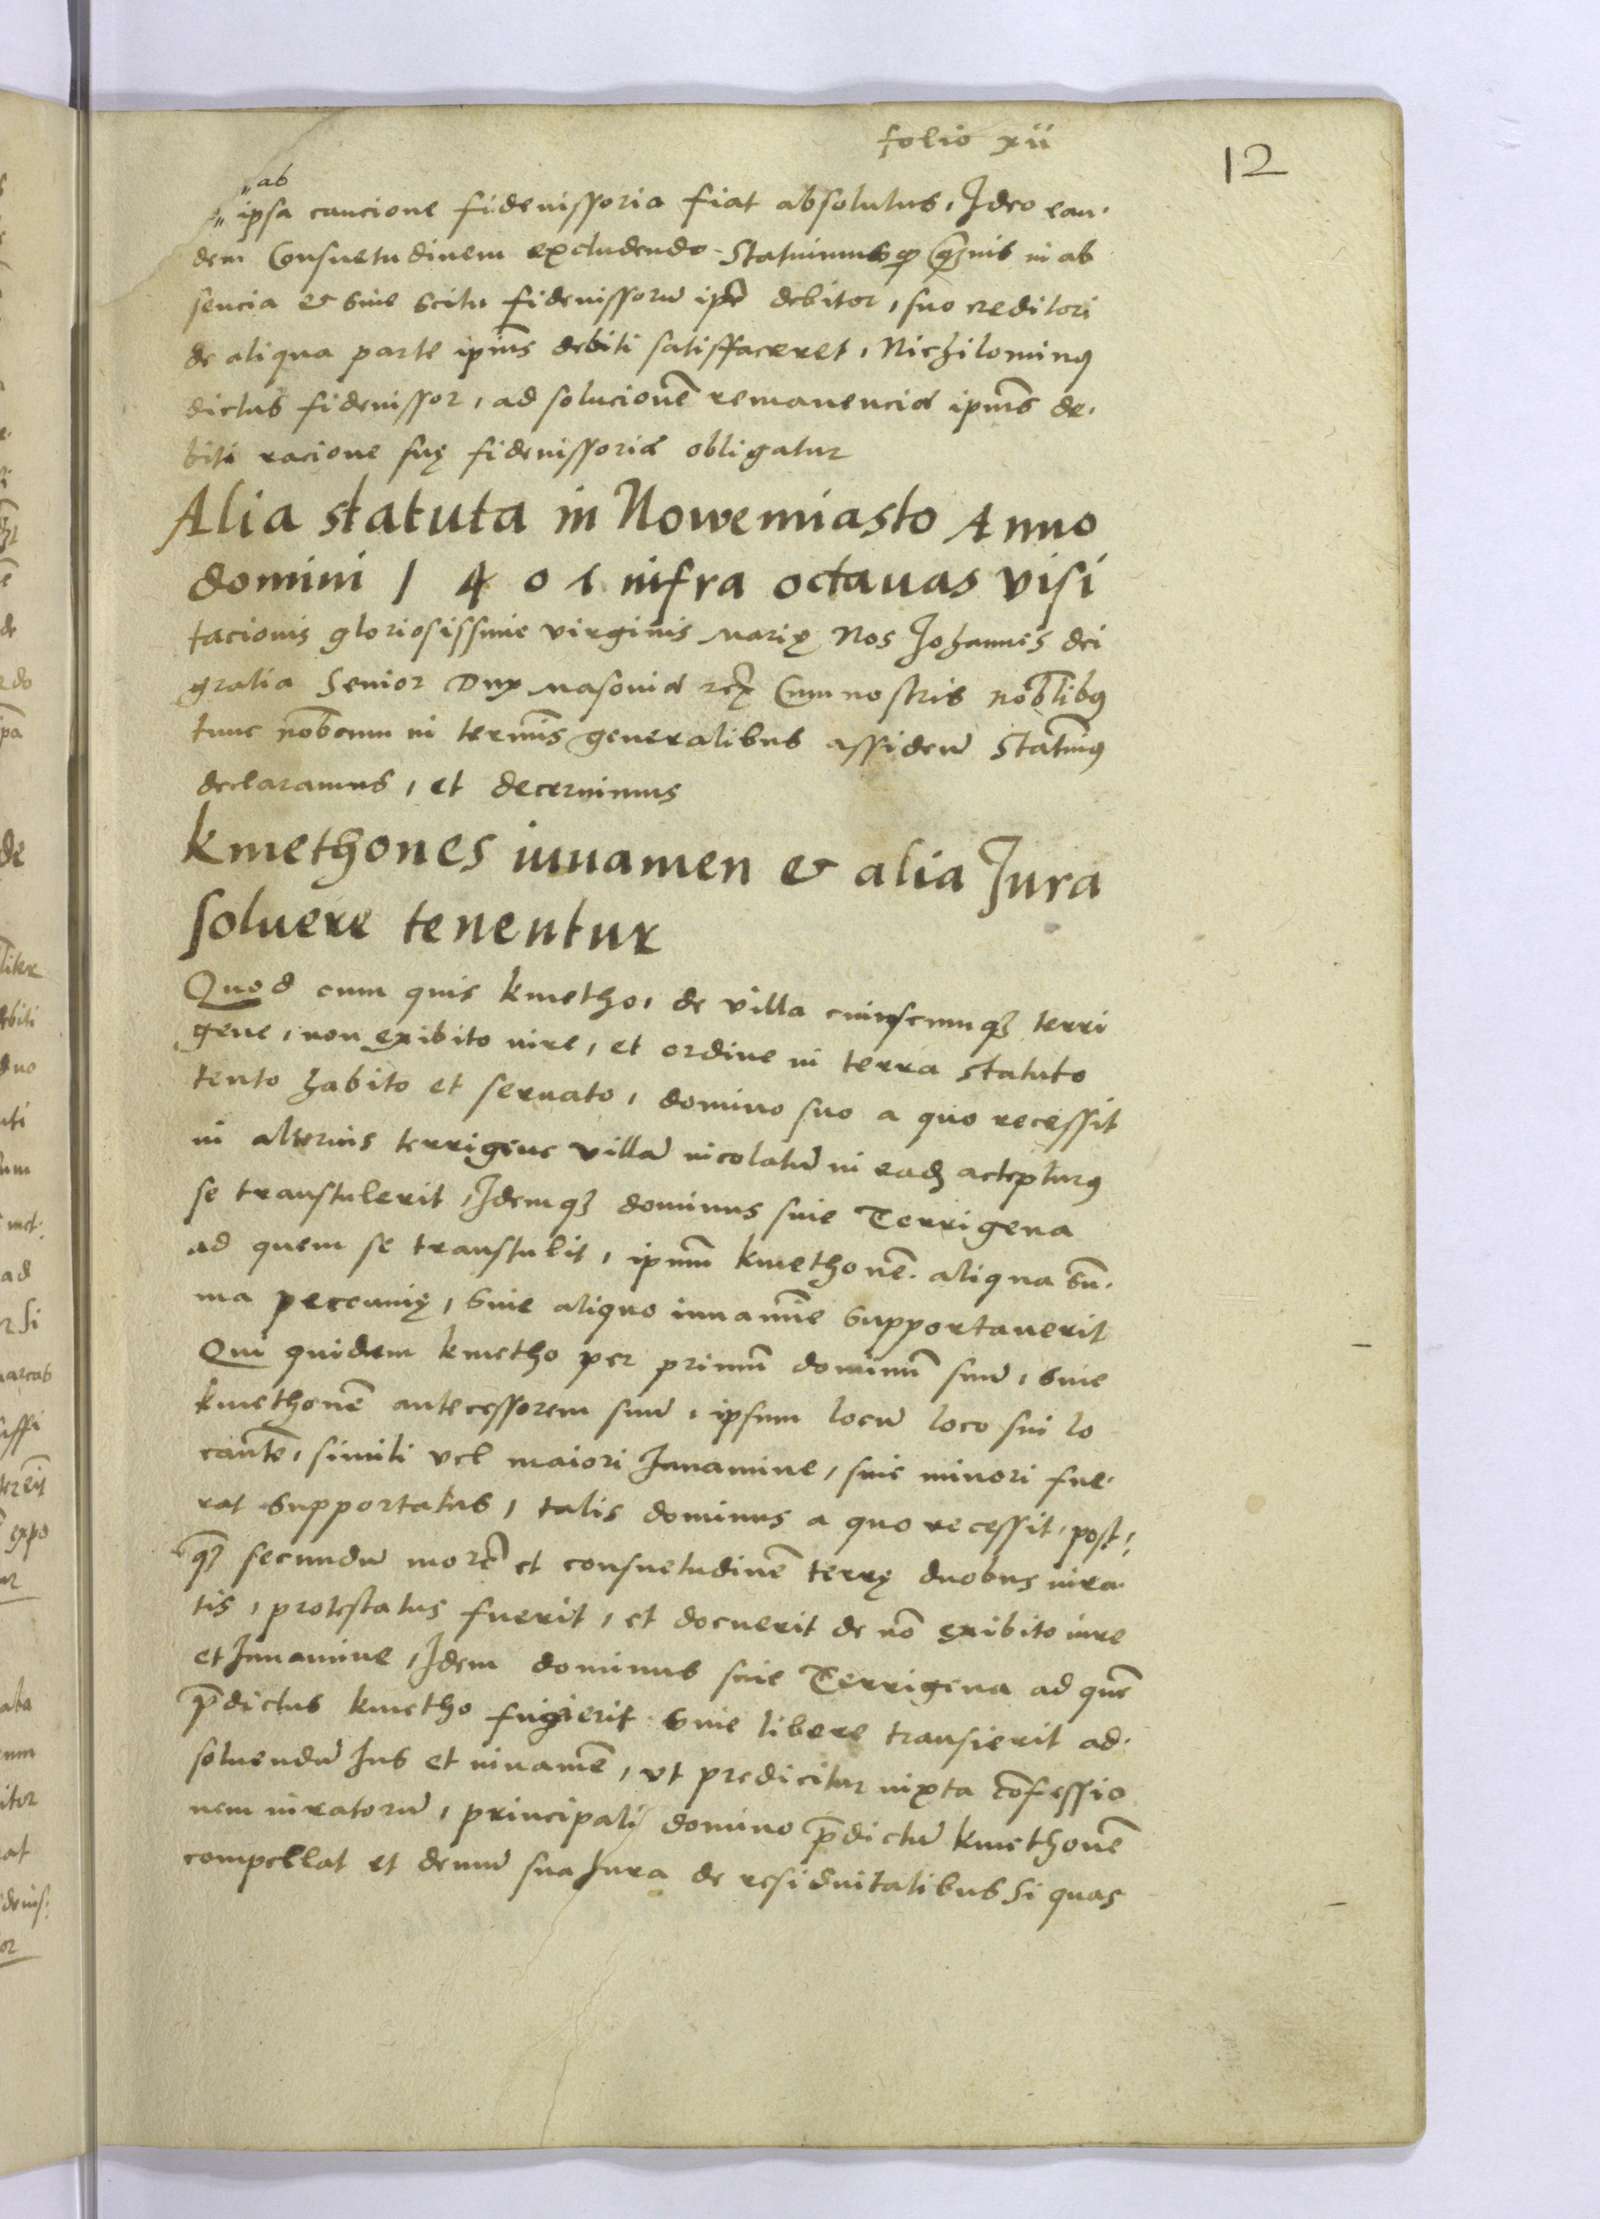 folio xii
12
ab
ipsa caucione fideiussoria fiat absolutus, Ideo ean-
dem Consuetudinem excludendo Statuimus quis in ab
sencia et sine scitu fideiussorū ipē debitor, suo creditori
de aliqua parte ipius debiti satisffaceret, Nichilominus
dictus fideiussor, ad solucionē remanenciā ipius de-
biti racione suę fideiussoriæ obligatur
Alia statuta in Nowemiasto Anno
domini 1401 infra octauas visi
tacionis gloriosissime virginis Marię Nos Johannes dei
gratia Senior Dux Masouiæ Cum nostris nobilibus
tunc nobcum in terminis generalibus assideñ Statuimus
declaramus, et decernimus
kmethones iuuamen et alia Jura
soluere tenentur
Quod cum quis kmetho, de villa cuiuscumque terri
gene, non exibito iure, et ordine in terra statuto
tento habito et seruato, domino suo a quo recessit
in alterius terrigene villā incolatū in eadem accepturus
se transtulerit, Idemque dominus siue Terrigena
ad quem se transtulit, ipmm kmethonē aliqua sū-
ma peccunię, siue aliquo iuuamine supportauerit
Qui quidem kmetho per primū dominū suū, siue
kmethonē antecessorem suū, ipsum locū loco sui lo
cantē, simili vel maiori Iuuamine, siue minori fue-
rat supportatus, talis dominus a quo recessit, post-
que secundū morē et consuetudinē terrę duobus iura-
tis, protestatus fuerit, et docuerit de nō exibito iure
et Iuuamine, Idem dominus siue Terrigena ad quē
p̄dictus kmetho fugierit siue libere transierit ad-
soluendū Ius et iuuamē, vt predicitur iuxta cōfessio
nem iuratorū, principali domino p̄dictū kmethonē
compellat et demū sua Jura de residuitalibus Si quas